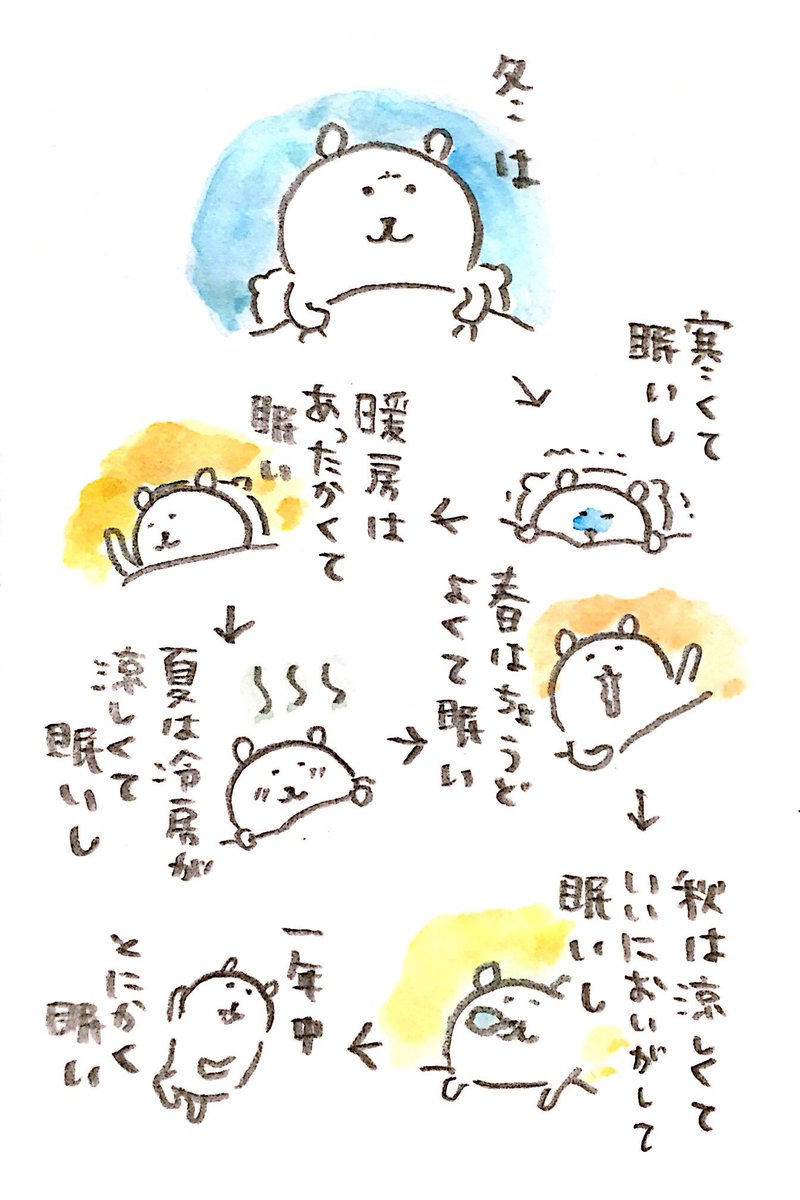 冬は
寒くて
眠いし
暖房は
あったかくて
眠い
夏は冷房が
涼しくて
眠いし
春はちょうど
よくて眠い
秋は涼しくて
いいにおいがして
眠いし
一年中
とにかく
眠い